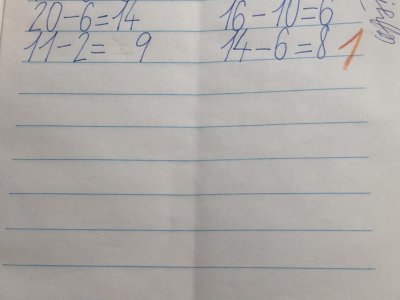 20-6=14 16-10=6
11-2= 9 14-6=8 1